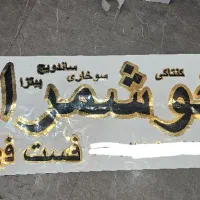 کنتاکی سوخاری ساندویچ پیتزا
خوشمرا
فست فو